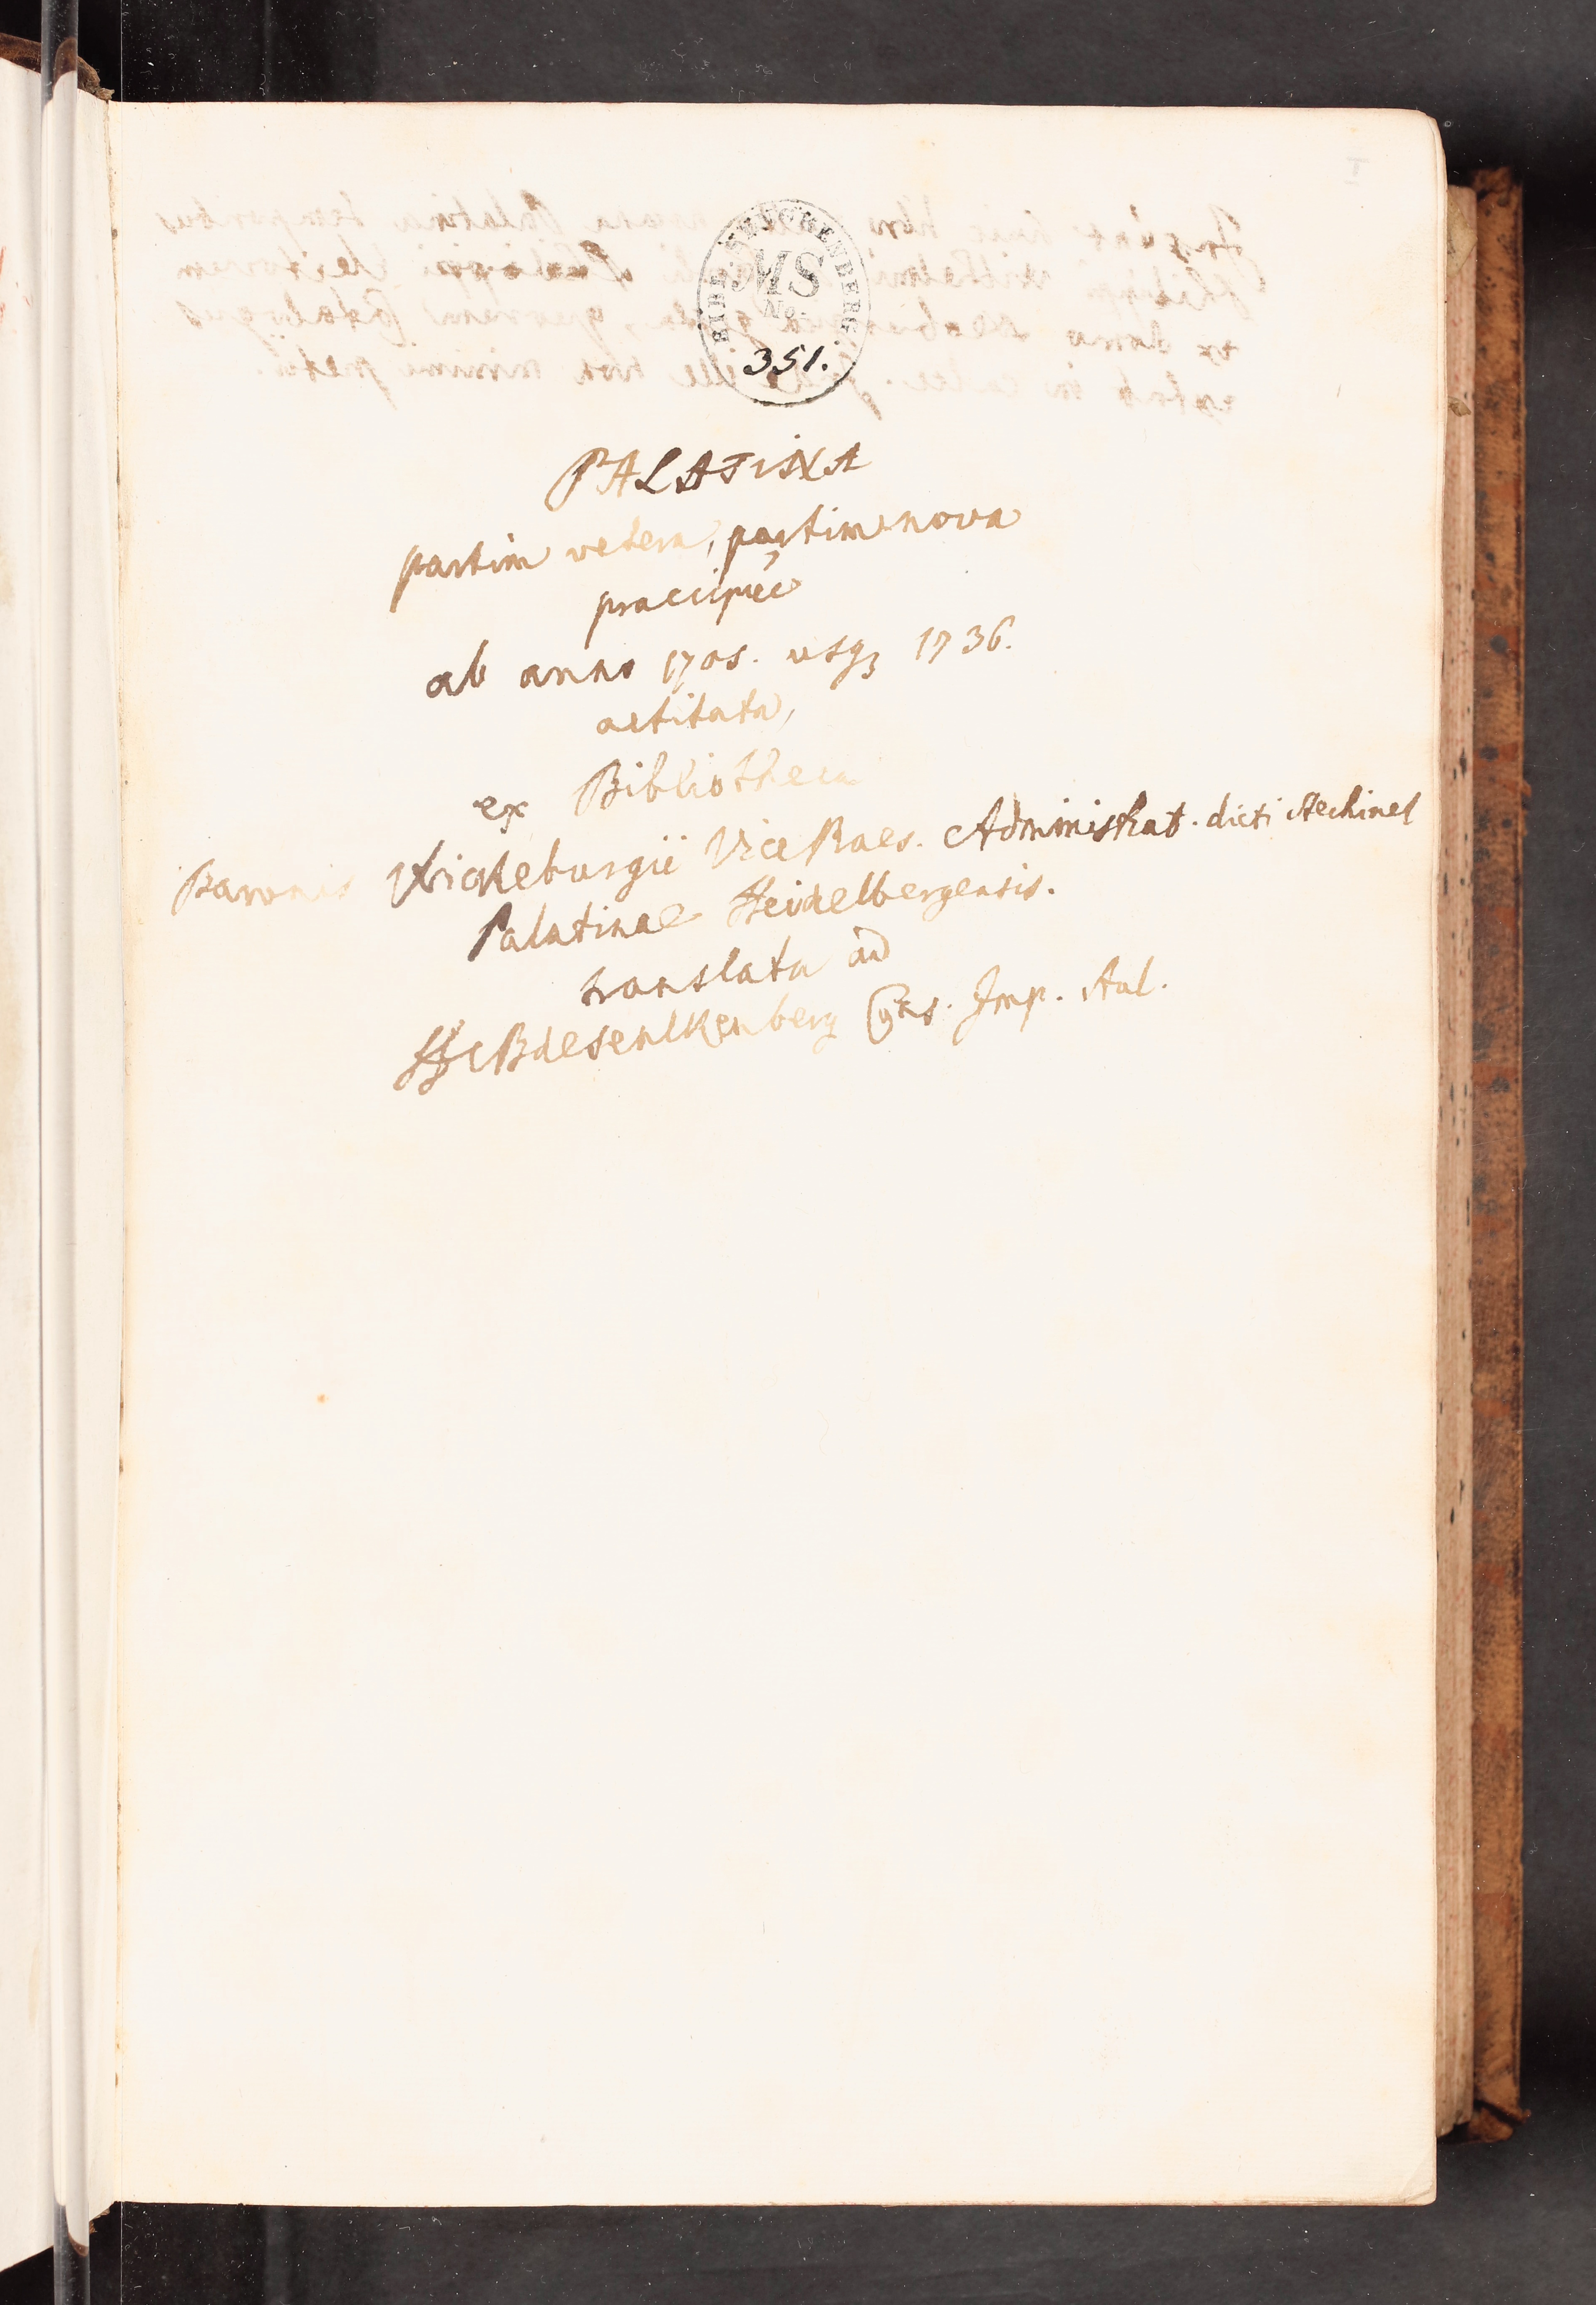 BIBL. SENCKENBERG.
MS
No.
351.
PALATINA
partim vetera, partim nova
praecipuè
ab anno 1705. usqꝫ 1736.
actitata,
ex Bibliotheca
Baronis Wickeburgii Vice Praes. Administrat. dicti Stechinel
Palatinae Heidelbergensis.
translata ad
HCBdeSenlkenberg Cons. Imp. Aul.